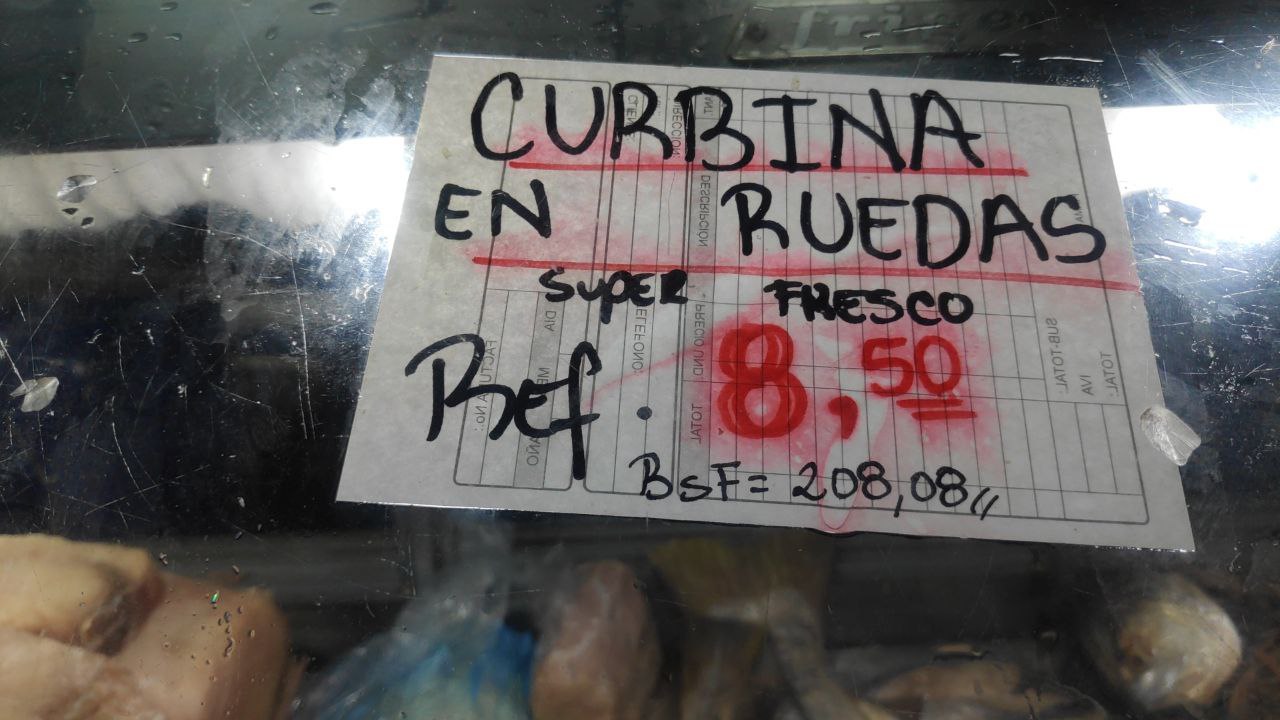 CURBINA
EN RUEDAS
SUPER FRESCO
Ref. 8,50
BsF= 208,08,,
DIRECCION:
DESCRIPCION
TELEFONO
PRECIO UND
TOTAL
DIA
AÑO
SUB-TOTAL:
IVA
TOTAL: